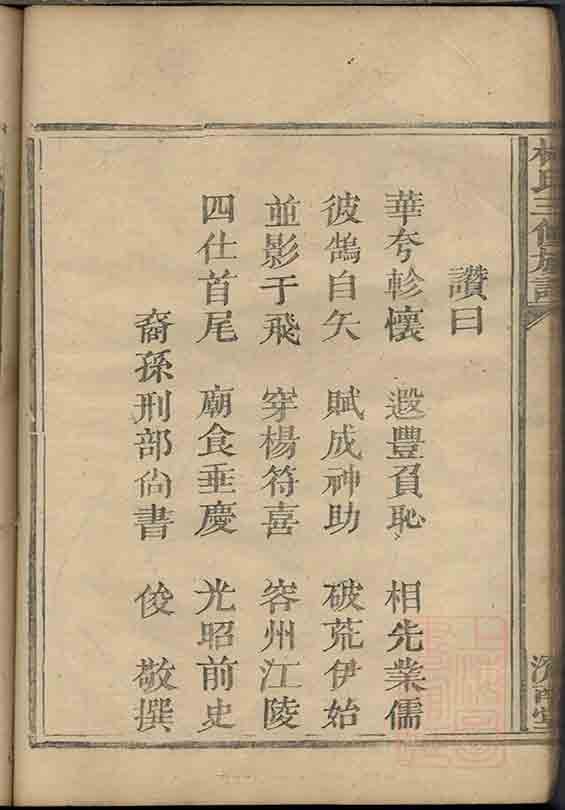 林氏三修族譜
讚曰
華夸軫懷　遐豐負恥　相先業儒
彼鵠自矢　賦成神助　破荒伊始
並影于飛　穿楊符喜　容州江陵
四仕首尾　廟食垂慶　光昭前史
裔孫刑部尚書　俊　敬撰